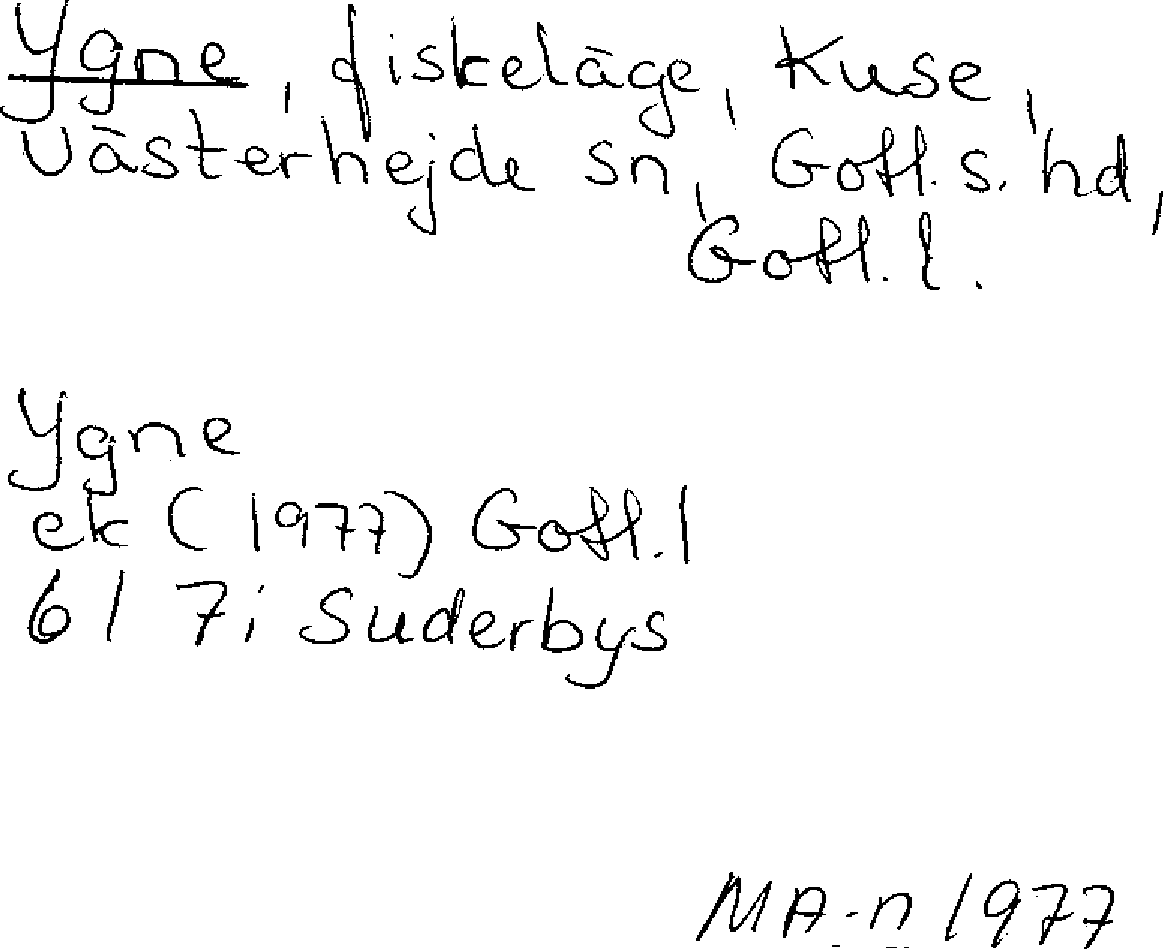 Ygne, fiskeläge, Kuse,
Västerhejde sn, Gotl. s. hd,
Gotl. l.
Ygne
ek (1977) Gotl. l
6I 7i Suderbys
MA-n 1977